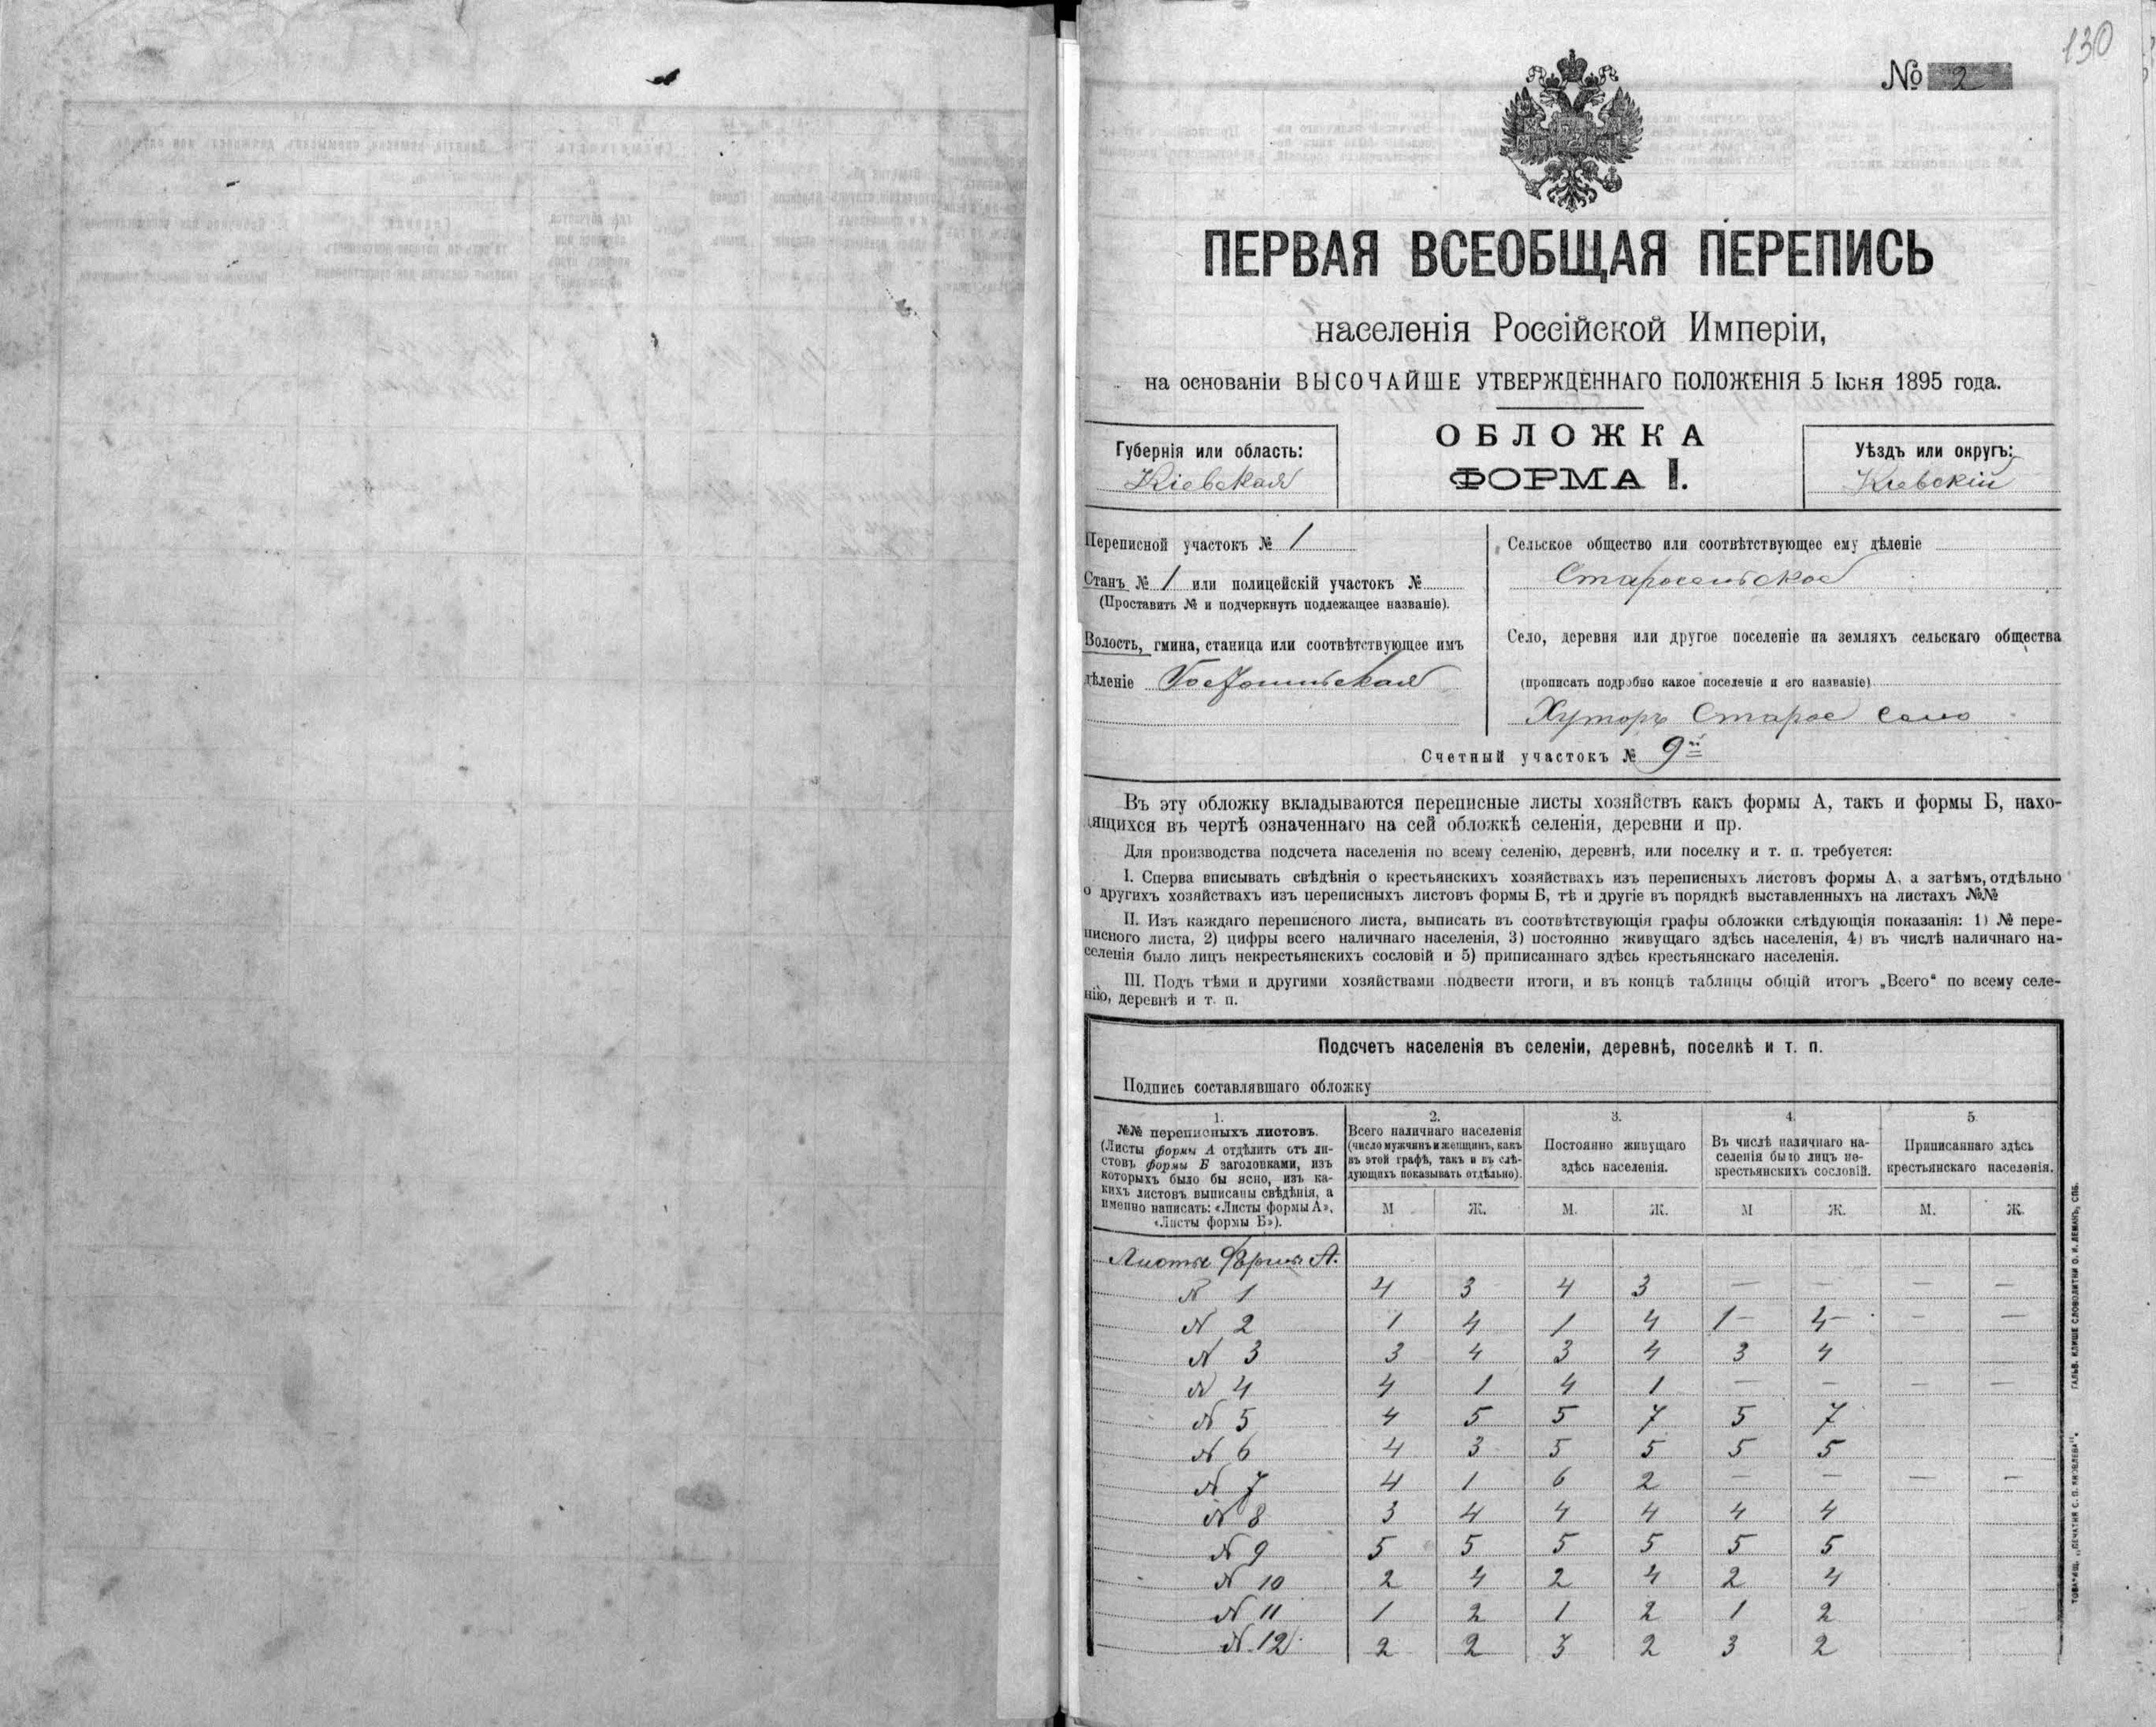 130
№ 2
ПЕРВАЯ ВСЕОБЩАЯ ПЕРЕПИСЬ
населенія Россійской Имперіи,
на основаніи ВЫСОЧАЙШЕ УТВЕРЖДЕННАГО ПОЛОЖЕНІЯ 5 Іюня 1895 года.
ОБЛОЖКА
ФОРМА I.
Губернія или область:
Кіевская
Уѣздъ или округъ:
Кіевскій
Переписной участокъ № 1
Станъ № 1 или полицейскій участокъ №
(Проставить № и подчеркнуть подлежащее названіе).
Волость, гмина, станица или соотвѣтствующее имъ
дѣленіе Гостомльская
Сельское общество или соотвѣтствующее ему дѣленіе
Старосельское
Село, деревня или другое поселеніе на земляхъ сельскаго общества
(прописать подробно какое поселеніе и его названіе)
Хуторъ Старое Село
Счетный участокъ № 9й
Въ эту обложку вкладываются переписные листы хозяйствъ какъ формы А, такъ и формы Б, нахо-
ящихся въ чертѣ означеннаго на сей обложкѣ селенія, деревни и пр.
Для производства подсчета населенія по всему селенію, деревнѣ, или поселку и т. п. требуется:
I. Сперва вписывать свѣдѣнія о крестьянскихъ хозяйствахъ изъ переписныхъ листовъ формы А, а затѣмъ, отдѣльно
о другихъ хозяйствахъ изъ переписныхъ листовъ формы Б, тѣ и другіе въ порядкѣ выставленныхъ на листахъ №№
II. Изъ каждаго переписного листа, выписать въ соотвѣтствующія графы обложки слѣдующія показанія: 1) № пере-
писного листа, 2) цифры всего наличнаго населенія, 3) постоянно живущаго здѣсь населенія, 4) въ числѣ наличнаго на-
селенія было лицъ некрестьянскихъ сословій и 5) приписаннаго здѣсь крестьянскаго населенія.
III. Подъ тѣми и другими хозяйствами подвести итоги, и въ концѣ таблицы общій итогъ „Всего“ по всему селе-
нію, деревнѣ и т. п.
Подсчетъ населенія въ селеніи, деревнѣ, поселкѣ и т. п.
Подпись составлявшаго обложку
1.
№№ переписныхъ листовъ.
(Листы формы А отдѣлить отъ ли-
стовъ формы Б заголовками, изъ
которыхъ было бы ясно, изъ ка-
кихъ листовъ выписаны свѣдѣнія, а
именно написать: «Листы формы А»,
«Листы формы Б»).
2.
Всего наличнаго населенія
(число мужчинъ и женщинъ, какъ
въ этой графѣ, такъ и въ слѣ-
дующихъ показывать отдѣльно).
3.
Постоянно живущаго
здѣсь населенія.
4.
Въ числѣ наличнаго на-
селенія было лицъ не-
крестьянскихъ сословій.
5.
Приписаннаго здѣсь
крестьянскаго населенія.
М Ж. М. Ж. М Ж. М. Ж.
Листы формы А.
№ 1 4 3 4 3 — — — —
№ 2 1 4 1 4 1 4 — —
№ 3 3 4 3 4 3 4
№ 4 4 1 4 1 — — — —
№ 5 4 5 5 7 5 7
№ 6 4 3 5 5 5 5
№ 7 4 1 6 2 — — — —
№ 8 3 4 4 4 4 4
№ 9 5 5 5 5 5 5
№ 10 2 4 2 4 2 4
№ 11 1 2 1 2 1 2
№ 12 2 2 3 2 3 2
ТОВАРИЩ. „ПЕЧАТНЯ С. П. ЯКОВЛЕВА“. ГАЛЬВ. КЛИШЕ СЛОВОЛИТНИ О. И. ЛЕМАНЪ, СПБ.